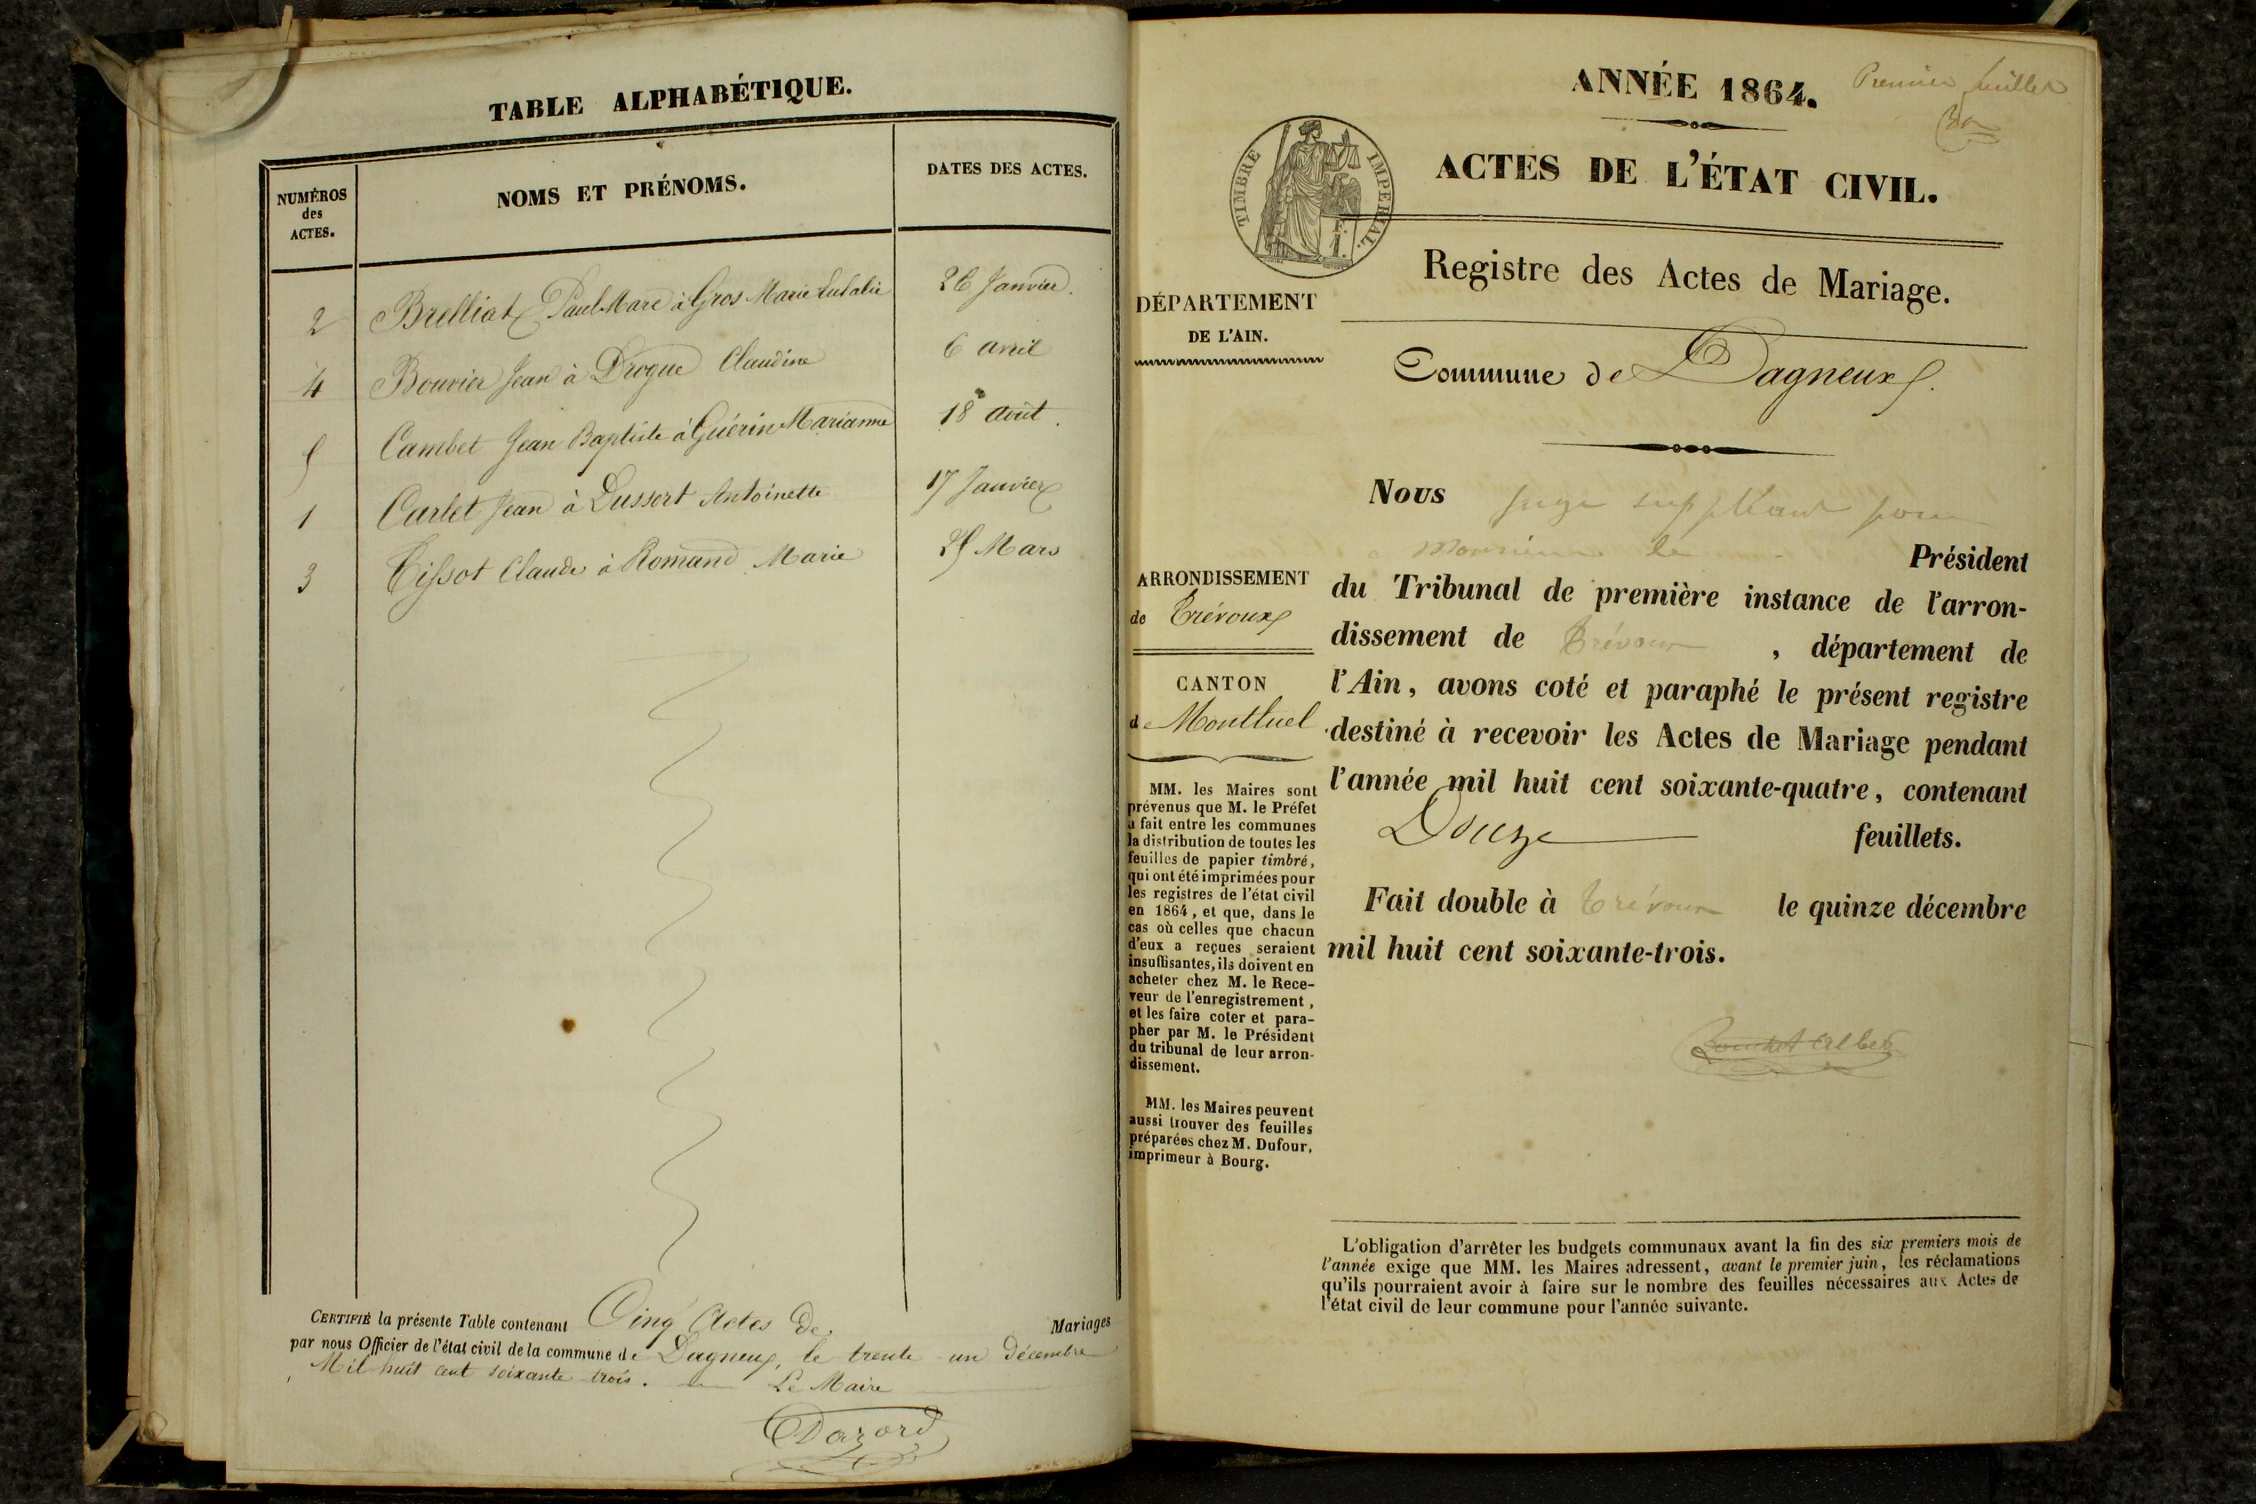 TABLE ALPHABÉTIQUE.
NUMÉROS des ACTES. NOMS ET PRÉNOMS. DATES DES ACTES.
2 Brelliat Paul Marc à Gros Marie Eulalie 26 Janvier.
4 Bouvier Jean à Drogue Claudine 6 avril
5 Cambet Jean Baptiste à Guérin Marianne 18 août.
1 Carlet Jean à Dussort Antoinette 17 Janvier
3 Tissot Claude à Romand Marie 25 Mars
CERTIFIÉ la présente Table contenant Cinq Actes de Mariages
par nous Officier de l'état civil de la commune de Dagneux, le trente un décembre
Mil huit cent soixante trois. Le Maire
Dazord
ANNÉE 1864.
Premier feuillet
TIMBRE IMPÉRIAL.
F. 1.
ACTES DE L'ÉTAT CIVIL.
Registre des Actes de Mariage.
DÉPARTEMENT
DE L'AIN.
Commune de Dagneux.
ARRONDISSEMENT
de Trévoux
CANTON
de Montluel
MM. les Maires sont
prévenus que M. le Préfet
a fait entre les communes
la distribution de toutes les
feuilles de papier timbré,
qui ont été imprimées pour
les registres de l'état civil
en 1864, et que, dans le
cas où celles que chacun
d'eux a reçues seraient
insuffisantes, ils doivent en
acheter chez M. le Rece-
veur de l'enregistrement,
et les faire coter et para-
pher par M. le Président
du tribunal de leur arron-
dissement.
MM. les Maires peuvent
aussi trouver des feuilles
préparées chez M. Dufour,
imprimeur à Bourg.
Nous juge suppléant pour
Monsieur le Président
du Tribunal de première instance de l'arron-
dissement de Trévoux, département de
l'Ain, avons coté et paraphé le présent registre
destiné à recevoir les Actes de Mariage pendant
l'année mil huit cent soixante-quatre, contenant
Douze feuillets.
Fait double à Trévoux le quinze décembre
mil huit cent soixante-trois.
L'obligation d'arrêter les budgets communaux avant la fin des six premiers mois de
l'année exige que MM. les Maires adressent, avant le premier juin, les réclamations
qu'ils pourraient avoir à faire sur le nombre des feuilles nécessaires aux Actes de
l'état civil de leur commune pour l'année suivante.